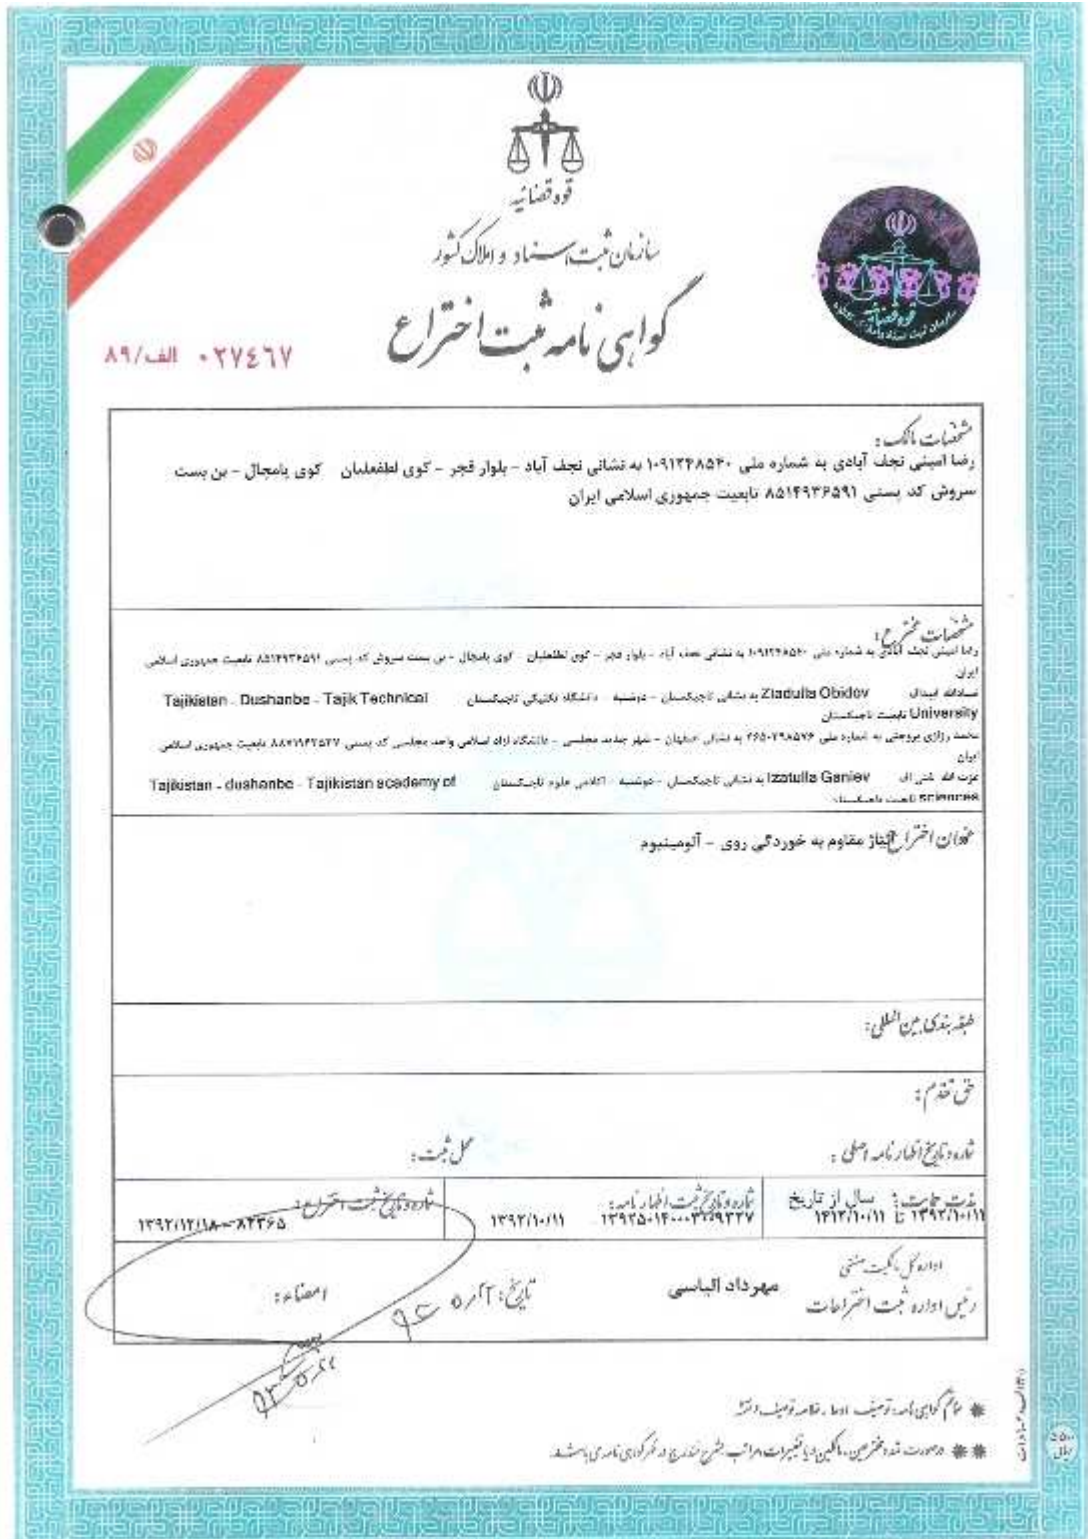 قوه قضائیه
سازمان ثبت اسناد و املاک کشور
گواهی نامه ثبت اختراع
۰۲۷۴۶۷ الف/۸۹
مشخصات مالک:
رضا امینی نجف آبادی به شماره ملی ۱۰۹۱۲۴۸۵۴۰ به نشانی نجف آباد - بلوار فجر - کوی لطفعلیان کوی پامچال - بن بست
سروش کد پستی ۸۵۱۴۹۳۶۵۹۱ تابعیت جمهوری اسلامی ایران
مشخصات مخترع:
رضا امینی نجف آبادی به شماره ملی ۱۰۹۱۲۴۸۵۴۰ به نشانی نجف آباد - بلوار فجر - کوی لطفعلیان کوی پامچال - بن بست سروش کد پستی ۸۵۱۴۹۳۶۵۹۱ تابعیت جمهوری اسلامی
ایران
Ziadulla Obidov به نشانی تاجیکستان - دوشنبه دانشگاه تکنیکی تاجیکستان Tajikistan - Dushanbe - Tajik Technical
University تابعیت تاجیکستان
محمد رزازی بروجنی به شماره ملی به نشانی اصفهان - شهر جدید مجلسی - دانشگاه آزاد اسلامی واحد مجلسی کد پستی تابعیت جمهوری اسلامی
ایران
عزت الله Izatulla Ganiev به نشانی تاجیکستان - دوشنبه - آکادمی علوم تاجیکستان Tajikistan - dushanbe - Tajikistan academy of
sciences تابعیت تاجیکستان
عنوان اختراع: آلیاژ مقاوم به خوردگی روی - آلومینیوم
طبقه بندی بین المللی:
حق تقدم:
شماره و تاریخ اظهارنامه اصلی: محل ثبت:
مدت حمایت: سال از تاریخ
۱۳۹۲/۱۰/۱۱ تا ۱۴۱۲/۱۰/۱۱
شماره و تاریخ ثبت اظهارنامه:
۱۳۹۲۵۰۱۴۰۰۰۳۰۰۹۳۲۷ ۱۳۹۲/۱۰/۱۱
شماره و تاریخ ثبت اختراع:
۸۲۳۶۵ - ۱۳۹۲/۱۲/۱۸
اداره کل مالکیت صنعتی
رئیس اداره ثبت اختراعات
مهرداد الیاسی
تاریخ:
امضاء:
* ضمائم گواهی نامه: توصیف، ادعا، خلاصه توصیف، نقشه